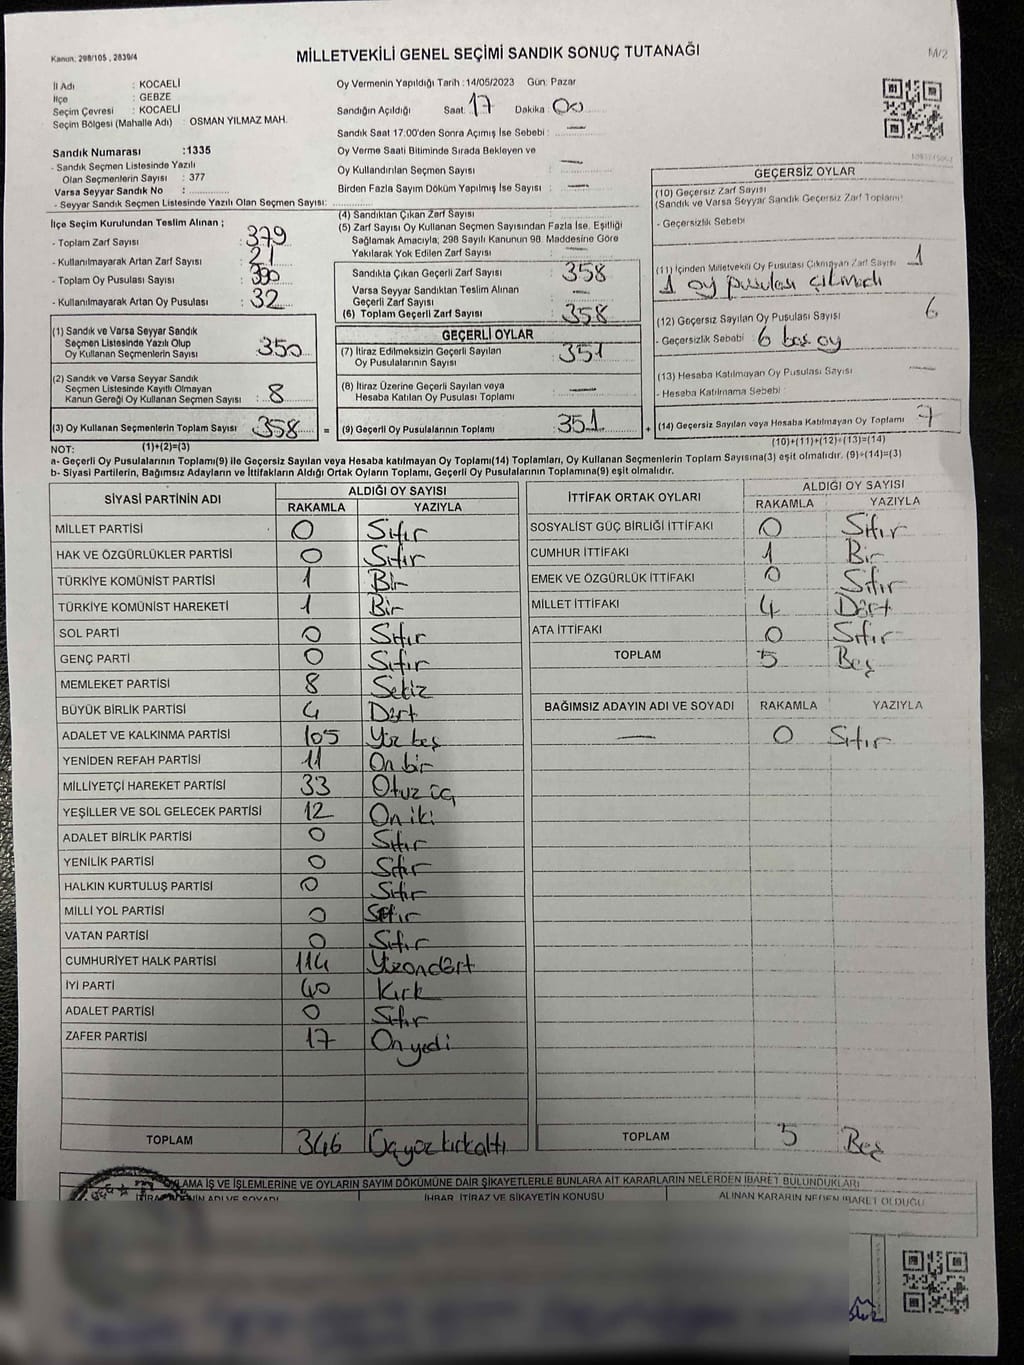 Kanun: 298/105, 2839/4
MİLLETVEKİLİ GENEL SEÇİMİ SANDIK SONUÇ TUTANAĞI
M/2
İl Adı : KOCAELİ
İlçe : GEBZE
Seçim Çevresi : KOCAELİ
Seçim Bölgesi (Mahalle Adı) : OSMAN YILMAZ MAH.
Oy Vermenin Yapıldığı Tarih : 14/05/2023 Gün: Pazar
Sandığın Açıldığı Saat 17 Dakika 00
Sandık Saat 17:00'den Sonra Açımış İse Sebebi : —
Oy Verme Saati Bitiminde Sırada Bekleyen ve
Oy Kullandırılan Seçmen Sayısı —
Birden Fazla Sayım Döküm Yapılmış İse Sayısı : —
Sandık Numarası :1335
- Sandık Seçmen Listesinde Yazılı
Olan Seçmenlerin Sayısı : 377
Varsa Seyyar Sandık No :
- Seyyar Sandık Seçmen Listesinde Yazılı Olan Seçmen Sayısı:
İlçe Seçim Kurulundan Teslim Alınan ;
- Toplam Zarf Sayısı : 379
- Kullanılmayarak Artan Zarf Sayısı : 21
- Toplam Oy Pusulası Sayısı : 390
- Kullanılmayarak Artan Oy Pusulası : 32
(1) Sandık ve Varsa Seyyar Sandık
Seçmen Listesinde Yazılı Olup
Oy Kullanan Seçmenlerin Sayısı : 350
(2) Sandık ve Varsa Seyyar Sandık
Seçmen Listesinde Kayıtlı Olmayan
Kanun Gereği Oy Kullanan Seçmen Sayısı : 8
(3) Oy Kullanan Seçmenlerin Toplam Sayısı : 358 =
(4) Sandıktan Çıkan Zarf Sayısı :
(5) Zarf Sayısı Oy Kullanan Seçmen Sayısından Fazla İse, Eşitliği
Sağlamak Amacıyla, 298 Sayılı Kanunun 98. Maddesine Göre
Yakılarak Yok Edilen Zarf Sayısı : —
Sandıkta Çıkan Geçerli Zarf Sayısı : 358
Varsa Seyyar Sandıktan Teslim Alınan
Geçerli Zarf Sayısı : —
(6) Toplam Geçerli Zarf Sayısı : 358
GEÇERLİ OYLAR
(7) İtiraz Edilmeksizin Geçerli Sayılan
Oy Pusulalarının Sayısı : 351
(8) İtiraz Üzerine Geçerli Sayılan veya
Hesaba Katılan Oy Pusulası Toplamı : —
(9) Geçerli Oy Pusulalarının Toplamı : 351 +
GEÇERSİZ OYLAR
(10) Geçersiz Zarf Sayısı
(Sandık ve Varsa Seyyar Sandık Geçersiz Zarf Toplamı)
- Geçersizlik Sebebi
(11) İçinden Milletvekili Oy Pusulası Çıkmayan Zarf Sayısı 1
1 oy pusulası çıkmadı
(12) Geçersiz Sayılan Oy Pusulası Sayısı 6
- Geçersizlik Sebebi : 6 boş oy
(13) Hesaba Katılmayan Oy Pusulası Sayısı —
- Hesaba Katılmama Sebebi :
(14) Geçersiz Sayılan veya Hesaba Katılmayan Oy Toplamı 7
NOT: (1)+(2)=(3)
(10)+(11)+(12)+(13)=(14)
a- Geçerli Oy Pusulalarının Toplamı(9) ile Geçersiz Sayılan veya Hesaba Katılmayan Oy Toplamı(14) Toplamları, Oy Kullanan Seçmenlerin Toplam Sayısına(3) eşit olmalıdır. (9)+(14)=(3)
b- Siyasi Partilerin, Bağımsız Adayların ve İttifakların Aldığı Ortak Oyların Toplamı, Geçerli Oy Pusulalarının Toplamına(9) eşit olmalıdır.
SİYASİ PARTİNİN ADI ALDIĞI OY SAYISI
RAKAMLA YAZIYLA
MİLLET PARTİSİ 0 Sıfır
HAK VE ÖZGÜRLÜKLER PARTİSİ 0 Sıfır
TÜRKİYE KOMÜNİST PARTİSİ 1 Bir
TÜRKİYE KOMÜNİST HAREKETİ 1 Bir
SOL PARTİ 0 Sıfır
GENÇ PARTİ 0 Sıfır
MEMLEKET PARTİSİ 8 Sekiz
BÜYÜK BİRLİK PARTİSİ 4 Dört
ADALET VE KALKINMA PARTİSİ 105 Yüz beş
YENİDEN REFAH PARTİSİ 11 On bir
MİLLİYETÇİ HAREKET PARTİSİ 33 Otuz üç
YEŞİLLER VE SOL GELECEK PARTİSİ 12 On iki
ADALET BİRLİK PARTİSİ 0 Sıfır
YENİLİK PARTİSİ 0 Sıfır
HALKIN KURTULUŞ PARTİSİ 0 Sıfır
MİLLİ YOL PARTİSİ 0 Sıfır
VATAN PARTİSİ 0 Sıfır
CUMHURİYET HALK PARTİSİ 114 Yüzondört
İYİ PARTİ 40 Kırk
ADALET PARTİSİ 0 Sıfır
ZAFER PARTİSİ 17 Onyedi
TOPLAM 346 Üçyüz kırkaltı
İTTİFAK ORTAK OYLARI ALDIĞI OY SAYISI
RAKAMLA YAZIYLA
SOSYALİST GÜÇ BİRLİĞİ İTTİFAKI 0 Sıfır
CUMHUR İTTİFAKI 1 Bir
EMEK VE ÖZGÜRLÜK İTTİFAKI 0 Sıfır
MİLLET İTTİFAKI 4 Dört
ATA İTTİFAKI 0 Sıfır
TOPLAM 5 Beş
BAĞIMSIZ ADAYIN ADI VE SOYADI RAKAMLA YAZIYLA
— 0 Sıfır
TOPLAM 5 Beş
LAMA İŞ VE İŞLEMLERİNE VE OYLARIN SAYIM DÖKÜMÜNE DAİR ŞİKAYETLERLE BUNLARA AİT KARARLARIN NELERDEN İBARET BULUNDUKLARI
İHBAR, İTİRAZ VE ŞİKAYETİN KONUSU ALINAN KARARIN NEDEN İBARET OLDUĞU